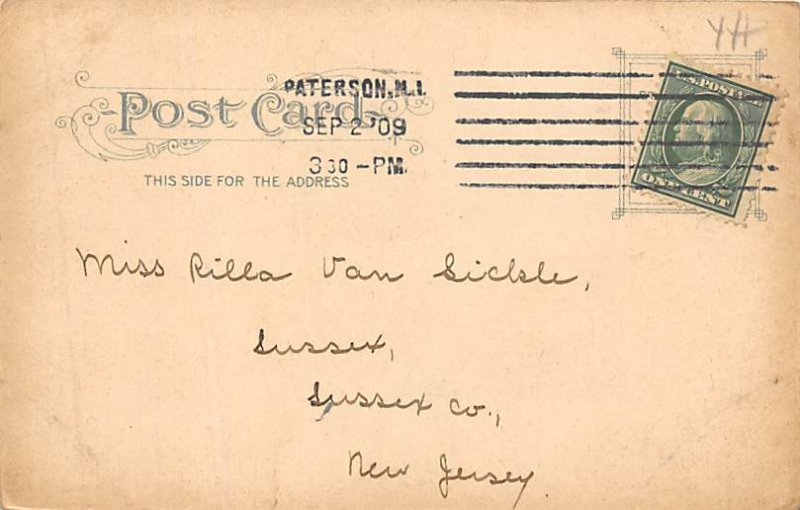 YH
POST CARD
PATERSON, N.J.
SEP 2 '09
3 30 - PM.
THIS SIDE FOR THE ADDRESS
U.S. POSTAGE
ONE CENT
Miss Rilla Van Sickle,
Sussex,
Sussex Co.,
New Jersey.